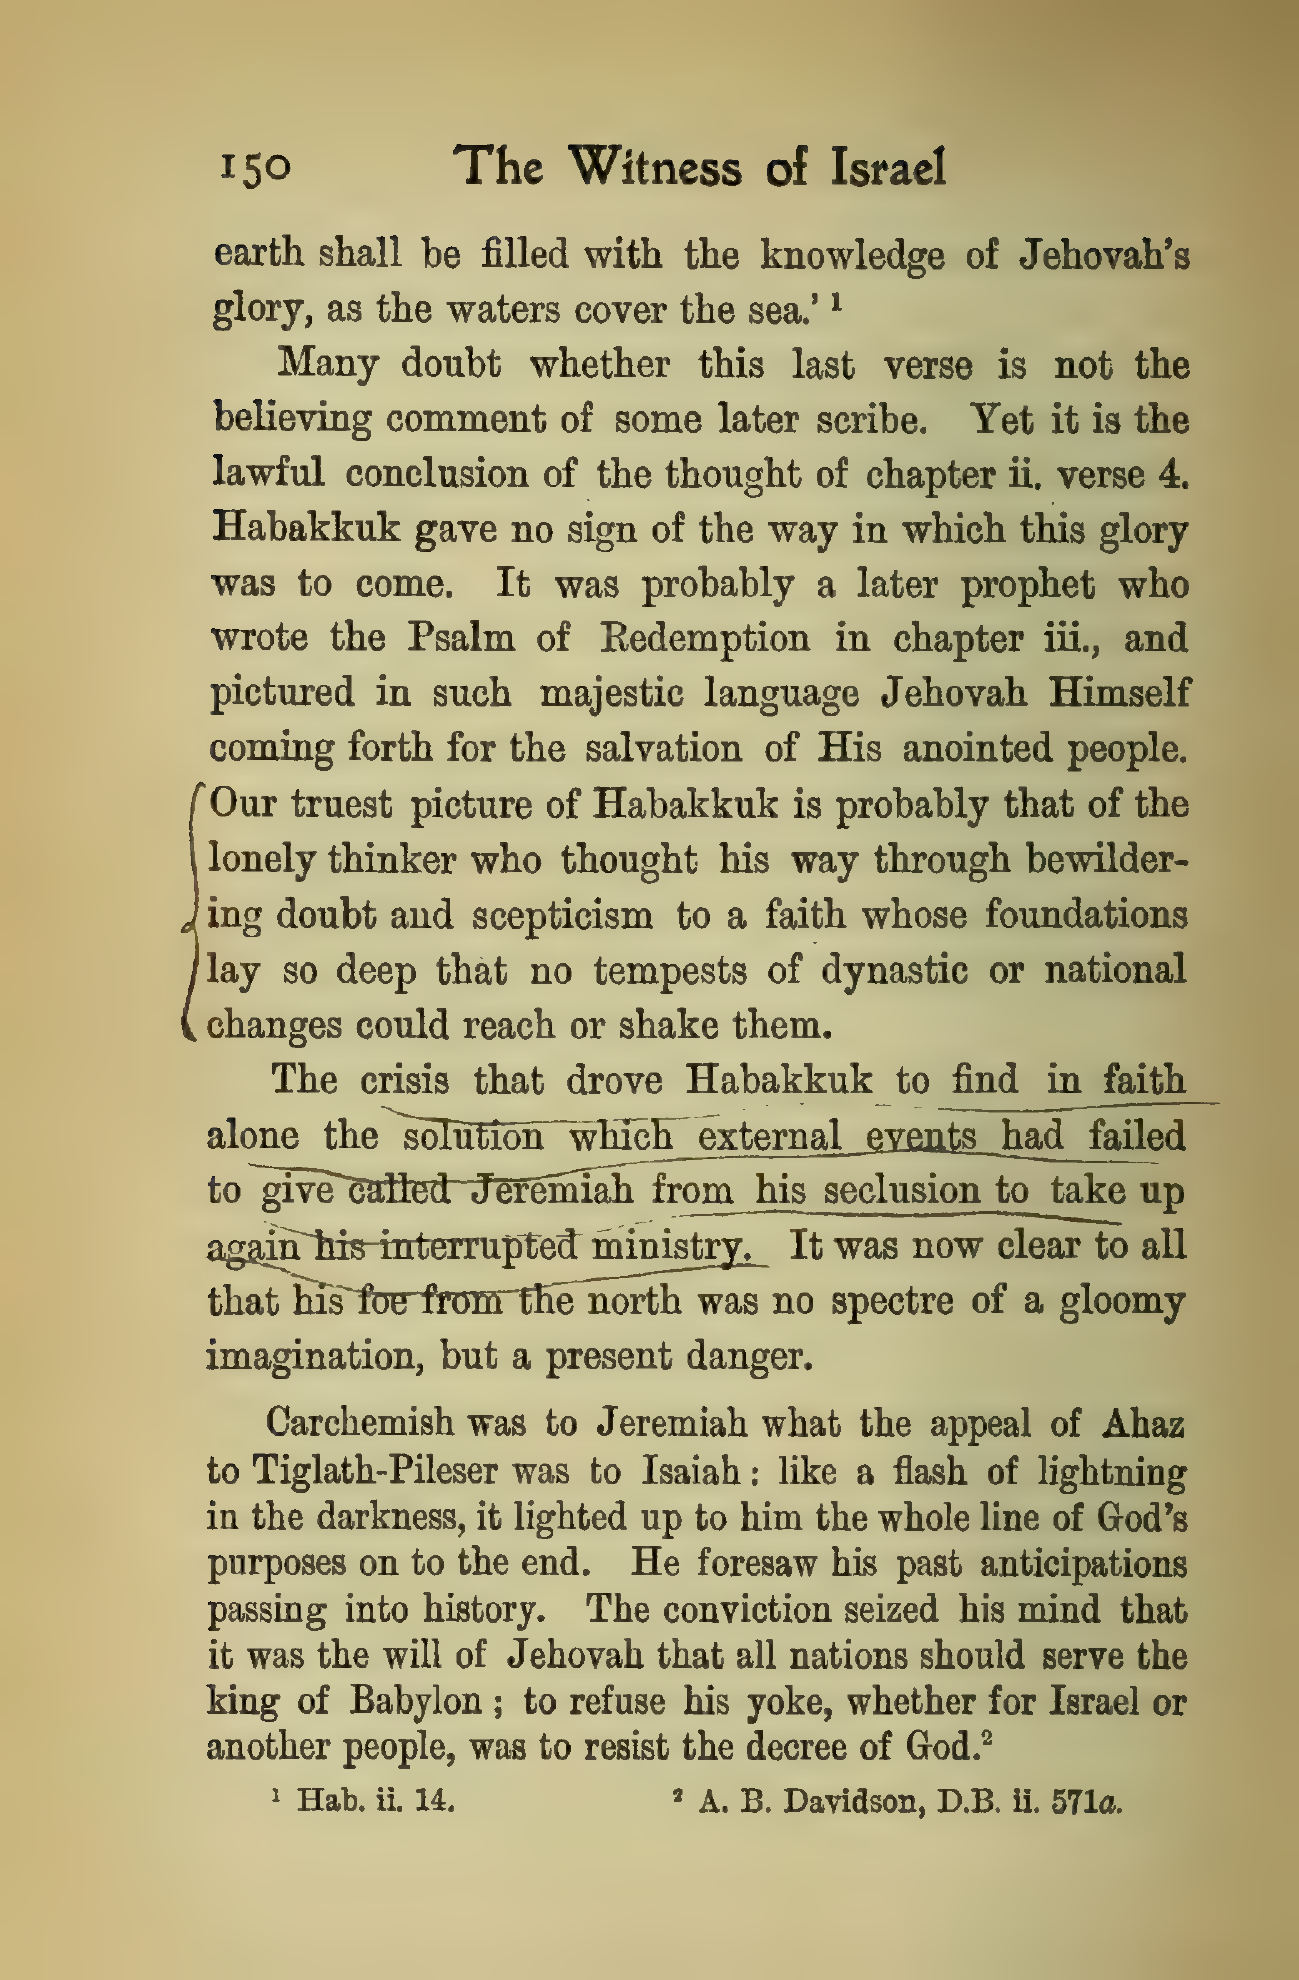 150 The Witness of Israel
earth shall be filled with the knowledge of Jehovah's
glory, as the waters cover the sea.' ¹
Many doubt whether this last verse is not the
believing comment of some later scribe. Yet it is the
lawful conclusion of the thought of chapter ii. verse 4.
Habakkuk gave no sign of the way in which this glory
was to come. It was probably a later prophet who
wrote the Psalm of Redemption in chapter iii., and
pictured in such majestic language Jehovah Himself
coming forth for the salvation of His anointed people.
Our truest picture of Habakkuk is probably that of the
lonely thinker who thought his way through bewilder-
ing doubt and scepticism to a faith whose foundations
lay so deep that no tempests of dynastic or national
changes could reach or shake them.
The crisis that drove Habakkuk to find in faith
alone the solution which external events had failed
to give called Jeremiah from his seclusion to take up
again his interrupted ministry. It was now clear to all
that his foe from the north was no spectre of a gloomy
imagination, but a present danger.
Carchemish was to Jeremiah what the appeal of Ahaz
to Tiglath-Pileser was to Isaiah: like a flash of lightning
in the darkness, it lighted up to him the whole line of God's
purposes on to the end. He foresaw his past anticipations
passing into history. The conviction seized his mind that
it was the will of Jehovah that all nations should serve the
king of Babylon; to refuse his yoke, whether for Israel or
another people, was to resist the decree of God.²
¹ Hab. ii. 14. ² A. B. Davidson, D.B. ii. 571a.